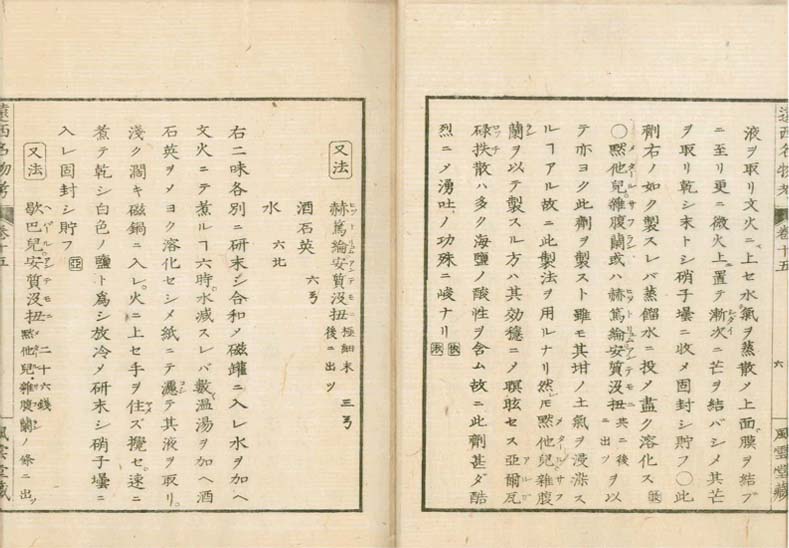 遠西名物考 巻十五 六 風雲堂蔵
液ヲ取リ文火ニ上セ水氣ヲ蒸散メ上面膜ヲ結ブ
ニ至リ更ニ微火上ニ置テ漸次ニ芒ヲ結バシメ其芒
ヲ取リ乾シ末トシ硝子壜ニ收メ固封シ貯フ○此
劑右ノ如ク製スレバ蒸餾水ニ投メ盡ク溶化ス
○黙他兒雜腹蘭或ハ赫篤綸安質没扭共ニ後ニ出ツヲ以
テ亦ヨク此劑ヲ製スト雖モ其坩ノ土氣ヲ浸染ス
ルヿアル故ニ此製法ヲ用ルナリ然レモ黙他兒雜腹
蘭ヲ以テ製スル方ハ其効穏ニメ瞑眩セス亞爾瓦
碌扶散ハ多ク海鹽ノ酸性ヲ含ム故ニ此劑甚ダ酷
烈ニメ湧吐ノ功殊ニ峻ナリ
又法 赫篤綸安質没扭極細末 三ヲ 後ニ出ツ
酒石英 六ヲ
水 六
右二味各別ニ研末シ合和メ磁罐ニ入レ水ヲ加ヘ
文火ニテ煮ルヿ六時水減スレバ數温湯ヲ加ヘ酒
石英ヲメヨク溶化セシメ紙ニテ濾テ其液ヲ取リ
淺ク濶キ磁鍋ニ入レ火ニ上セ手ヲ住ズ攪セ速ニ
煮テ乾シ白色ノ鹽ト爲シ放冷メ研末シ硝子壜ニ
入レ固封シ貯フ
又法 歇巴兒安質没扭 二十六錢 黙他兒雜腹蘭ノ條ニ出ツ
遠西名物考 巻十五 風雲堂蔵